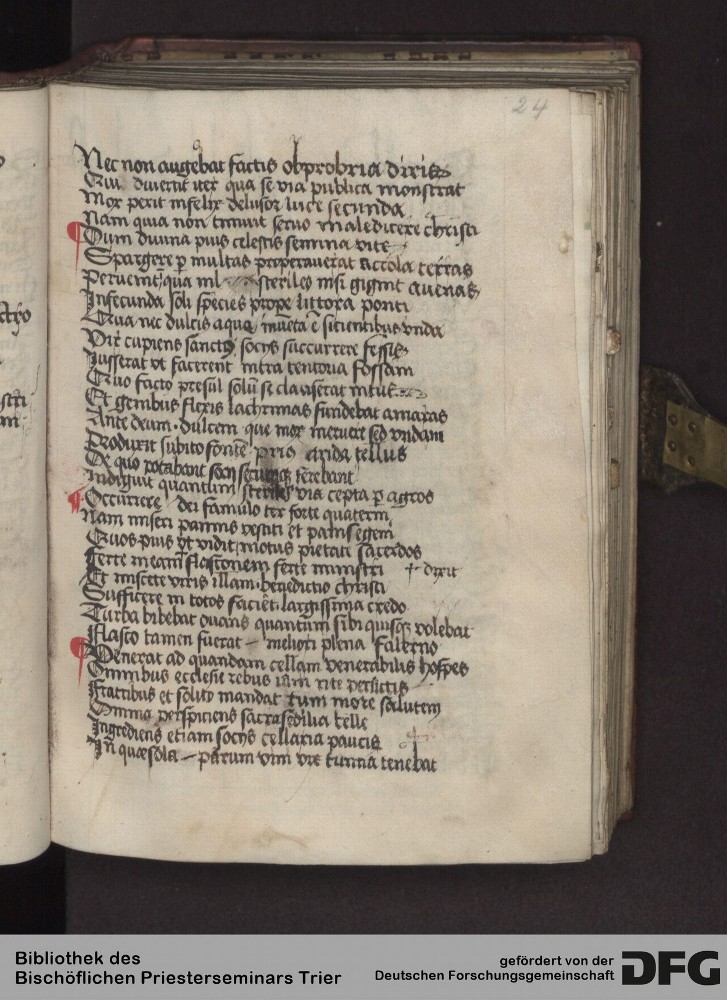 24
Nec non augebat factis obprobria diris
Qui divertit iter qua se via publica monstrat
Mox perit infelix delusor luce secunda
Nam quia non timuit servo maledicere christi
Dum divina pius celestis semina vite
Spargere p multas properaverat accola terras
Pervenit qua nil steriles nisi gignit avenas
Infecunda soli species prope littora ponti
Qua nec dulcis aqua inventa e sitientibus unda
Vir cupiens sanctus sociis succurrere fessis
Iusserat ut facerent intra tentoria fossam
Quo facto presul solum se clauserat intus
Et genibus flexis lachrimas fundebat amaras
Ante deum dulcem que mox meruere sed undam
Produxit subito fontem prius arida tellus
De quo potabant socii secumque ferebant
Indiguit quantum sterilis via cepta p agros
Occurrere dei famulo ter forte quaterni
Nam miseri pannis vestiti et panis egeni
Quos pius ut vidit motus pietate sacerdos
Ferte meam flasconem ferte ministri + dixit
Et miscete viris illam benedictio christi
Sufficere in totos faciet largissima credo
Turba bibebat ovans quantum sibi quisque volebat
Flasco tamen fuerat meliori plena falerno
Venerat ad quandam cellam venerabilis hospes
Omnibus ecclesie rebus iam rite peractis
Fratribus et solito mandat tum more salutem
Omnia perspiciens sacra sedilia celle
Ingrediens etiam sociis cellaria paucis
In quae sola parum vini vix tunna tenebat
Bibliothek des
Bischöflichen Priesterseminars Trier
gefördert von der
Deutschen Forschungsgemeinschaft
DFG